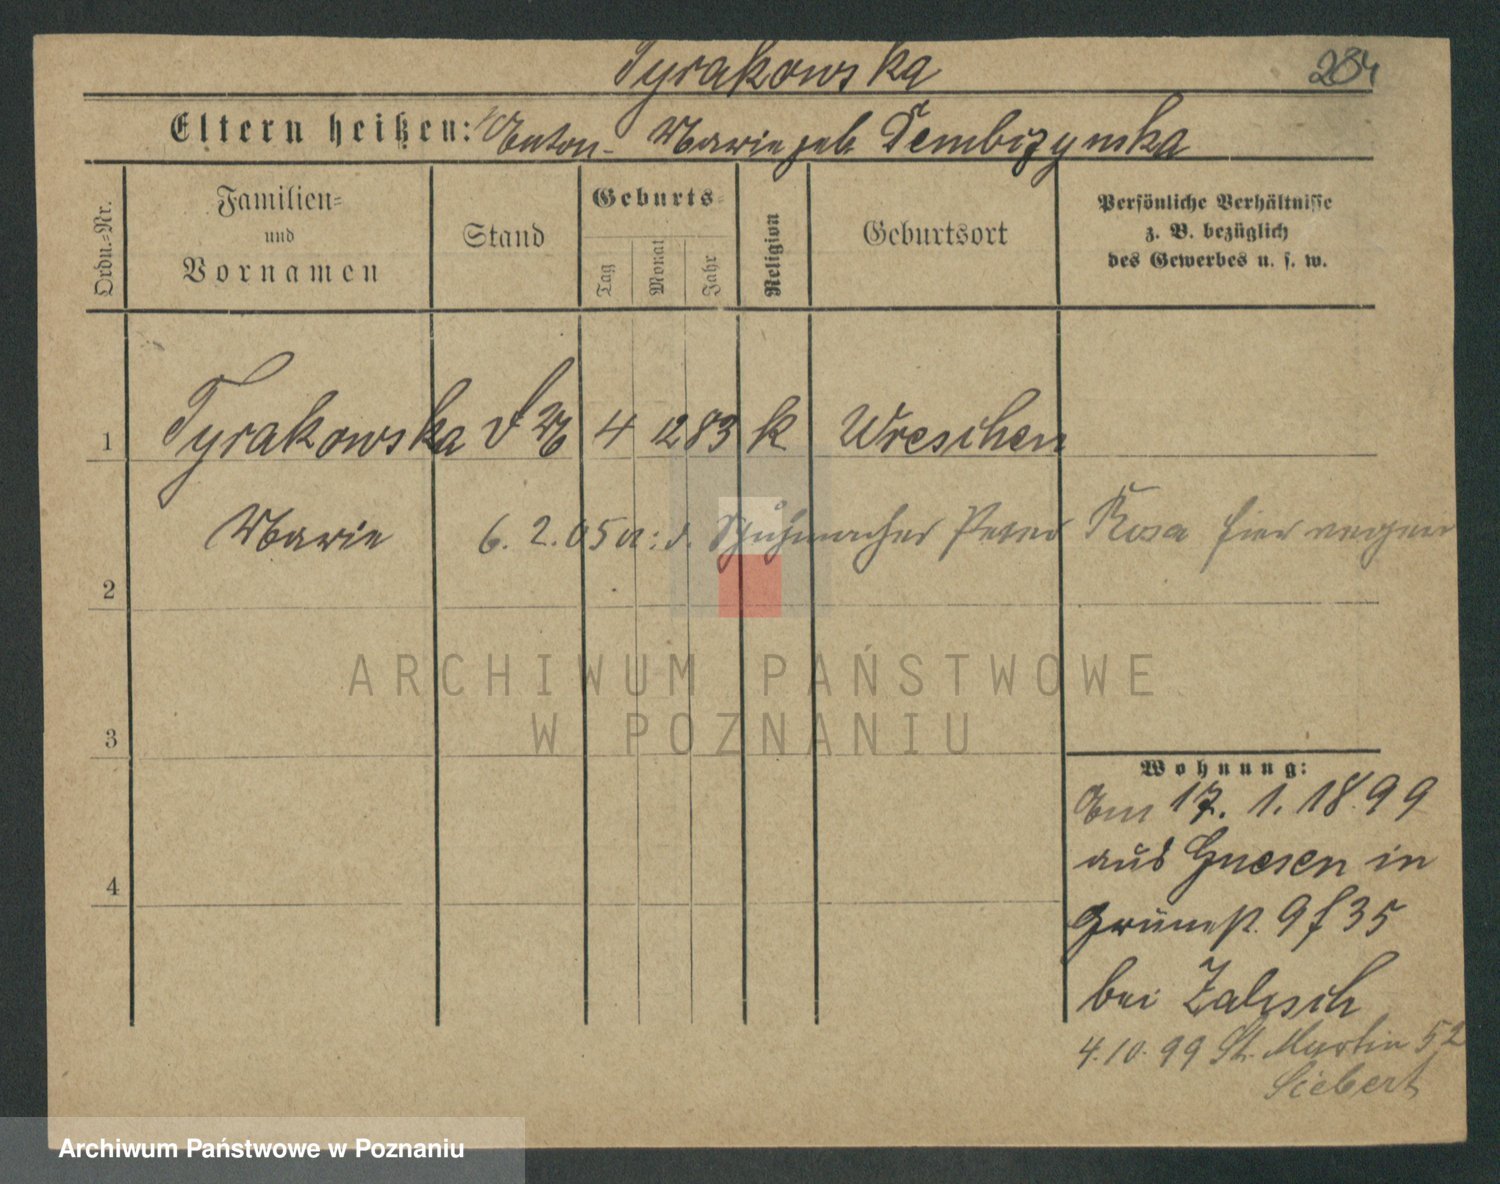 Tyrakowska
234
Eltern heißen: Anton - Marie geb. Dembizynska
Ordn.=Nr.
Familien=
und
Vornamen
Stand
Geburts=
Tag
Monat
Jahr
Religion
Geburtsort
Persönliche Verhältnisse
z. B. bezüglich
des Gewerbes u. s. w.
1
Tyrakowska
4 12 83 k Wreschen
Marie
6. 2. 05 Schuhmacher Peter Rosa hier
2
3
4
Wohnung:
Am 17. 1. 1899
aus Gnesen in
Grünest. 9 f 35
bei Zalisch
4. 10. 99 St. Martin 52
Siebert
ARCHIWUM PAŃSTWOWE
W POZNANIU
Archiwum Państwowe w Poznaniu